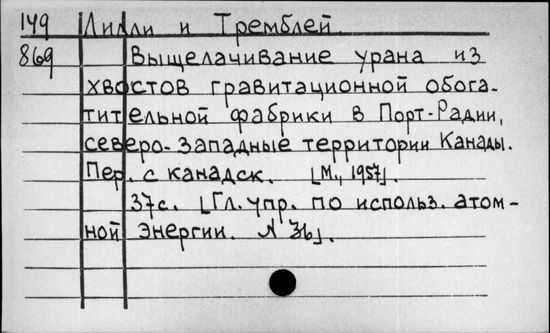 149 Лилли и Тремблей.
869 Выщелачивание урана из
хвостов гравитационной обога-
тительной фабрики в Порт-Радии,
северо-западные территории Канады.
Пер. с канадск. [М., 1957].
37с. [Гл. упр. по использ. атом-
ной энергии. № 36].